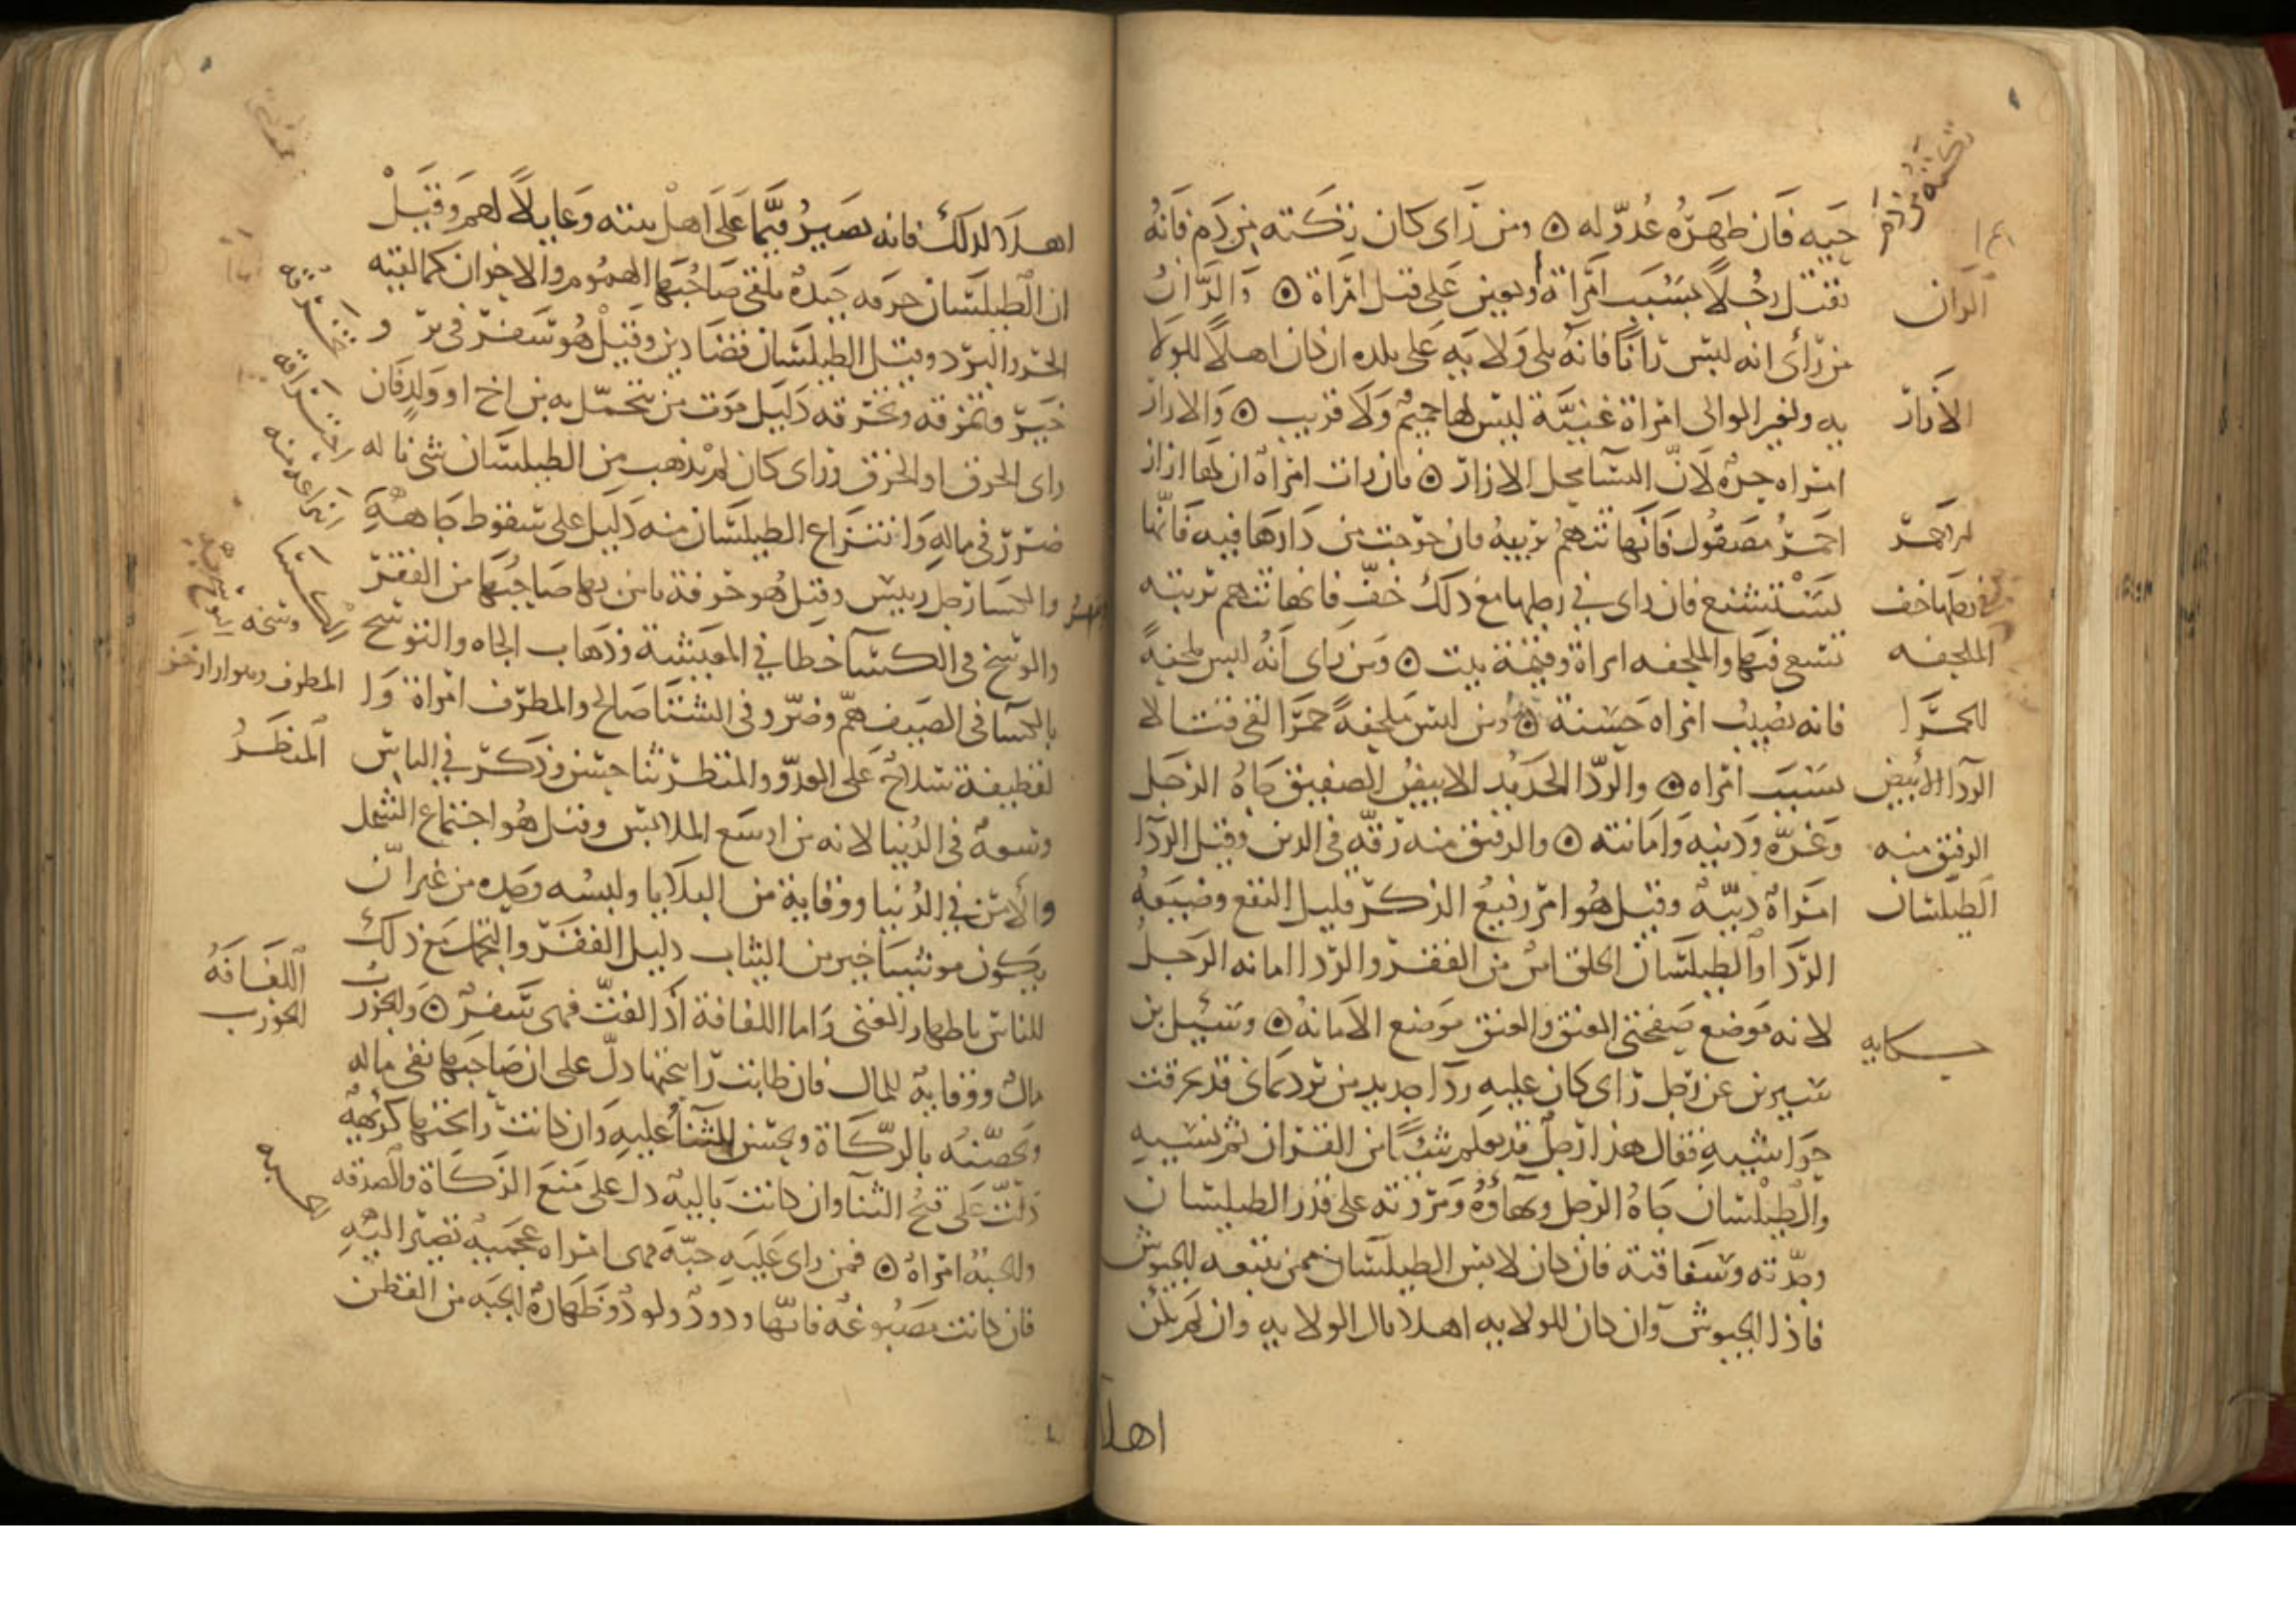 تكته من دم
حيه فان ظهره عدو له ۞ ومن رأى كان تكته من دم فانه
الران
يقتل رجلا بسبب امراة او يعين على قتل امراة ۞ والران
من رأى انه لبس رانا فانه يلي ولايه على بلده ان كان اهلا للولا
الازار
يه ولغير الوالى امراة غنيّة ليس لها حميم ولا قريب ۞ والازار
امراه حره لانّ النسا محل الازار ۞ فان رات امراة ان لها ازار
احمر مصقول فانها تتهم بريبه فان خرجت من دارها فيه فانها
في رجلها خف
تستشنع فان راى في رجلها مع ذلك خفّ فانها تتهم بريبه
الملحفه
تسعى فيها والملحفه امراة وقيّمة بيت ۞ ومن راى انه لبس ملحفة
الحمرا
فانه يصيب امراه حسنة ۞ ومن لبس ملحفة حمرا لقى قتالا
الردا الابيض
بسبب امراه ۞ والردا الجديد الابيض الصفيق جاه الرجل
الرقيق منه
وعزه ودينه وامانته ۞ والرقيق منه رقّه في الدين وقيل الردا
الطيلسان
امراة ديّنه وقيل هو امر رفيع الذكر قليل النفع وضيعه
الردا والطيلسان الخلق من الفقر والردا امانه الرجل
لانه موضع صفحتي العنق والعنق موضع الامانه ۞ وسئيل بن
حكايه
سيرين عن رجل راى كان عليه ردا جديد من برد يمانى قد تخرقت
حواشيه فقال هذا رجل قد تعلم شيئا من القران ثم نسيه
والطيلسان جاه الرجل وبهاؤه ومروته على قدر الطيلسان
وجدّته وصفاقته فان كان لابس الطيلسان ممن تتبعه الجيوش
قاد الجيوش وان كان للولايه اهلا نال الولايه وان لم يكن
اهلا
اهلا لذلك فانه يصير قيّما على اهل بيته وعايلا لهم وقيل
ان الطيلسان حرفه جيده يلقى صاحبها الهموم والاحزان كما تقيه
الحر والبرد وقيل الطيلسان قضا دين وقيل هو سفر في برّ و
خير وتمزقه وتخرقه دليل موت من يتجمّل به من اخ او ولد فان
راى الحرق او الخرق وراى كان لم يذهب من الطيلسان شى ناله
انتزاعه منه
ضرر في ماله وانتزاع الطيلسان منه دليل على سقوط جاهه
الكسا
والكسا رجل رييس وقيل هو حرفة يامن بها صاحبها من الفقر
وسخه
والوسخ في الكسآ خطا في المعيشة وذهاب الجاه والتوشح
المطرف
بالكسآ في الصيف همّ وضرّ وفي الشتا صالح والمطرف امراة وا
الممطر
لقطيفة سلاح على العدوّ والممطر ثنا حسن وذكر في الناس
وسعة في الدنيا لانه من اوسع الملابس وقيل هو اجتماع الشمل
والامن في الدنيا ووقاية من البلايا ولبسه وحده من غير ان
يكون مع شيا خير من الثياب دليل الفقر والتجمل مع ذلك
اللفافه
للناس باظهار الغنى واما اللفافة اذا لفّت فهى سفر ۞ والجورب
الجورب
مال ووقاية للمال فان طابت رايحتها دلّ على ان صاحبها يقى ماله
ويحصّنه بالزكاة ويحسن الثنا عليه وان كانت رايحتها كريهة
دلّت على قبح الثنآ وان كانت باليه دل على منع الزكاة والصدقه
الجبه
والجبه امراة ۞ فمن راى عليه جبّة فهى امراه عجميه تصير اليه
فان كانت مصبوغه فانها ودود ولود وظهارة الجبه من القطن